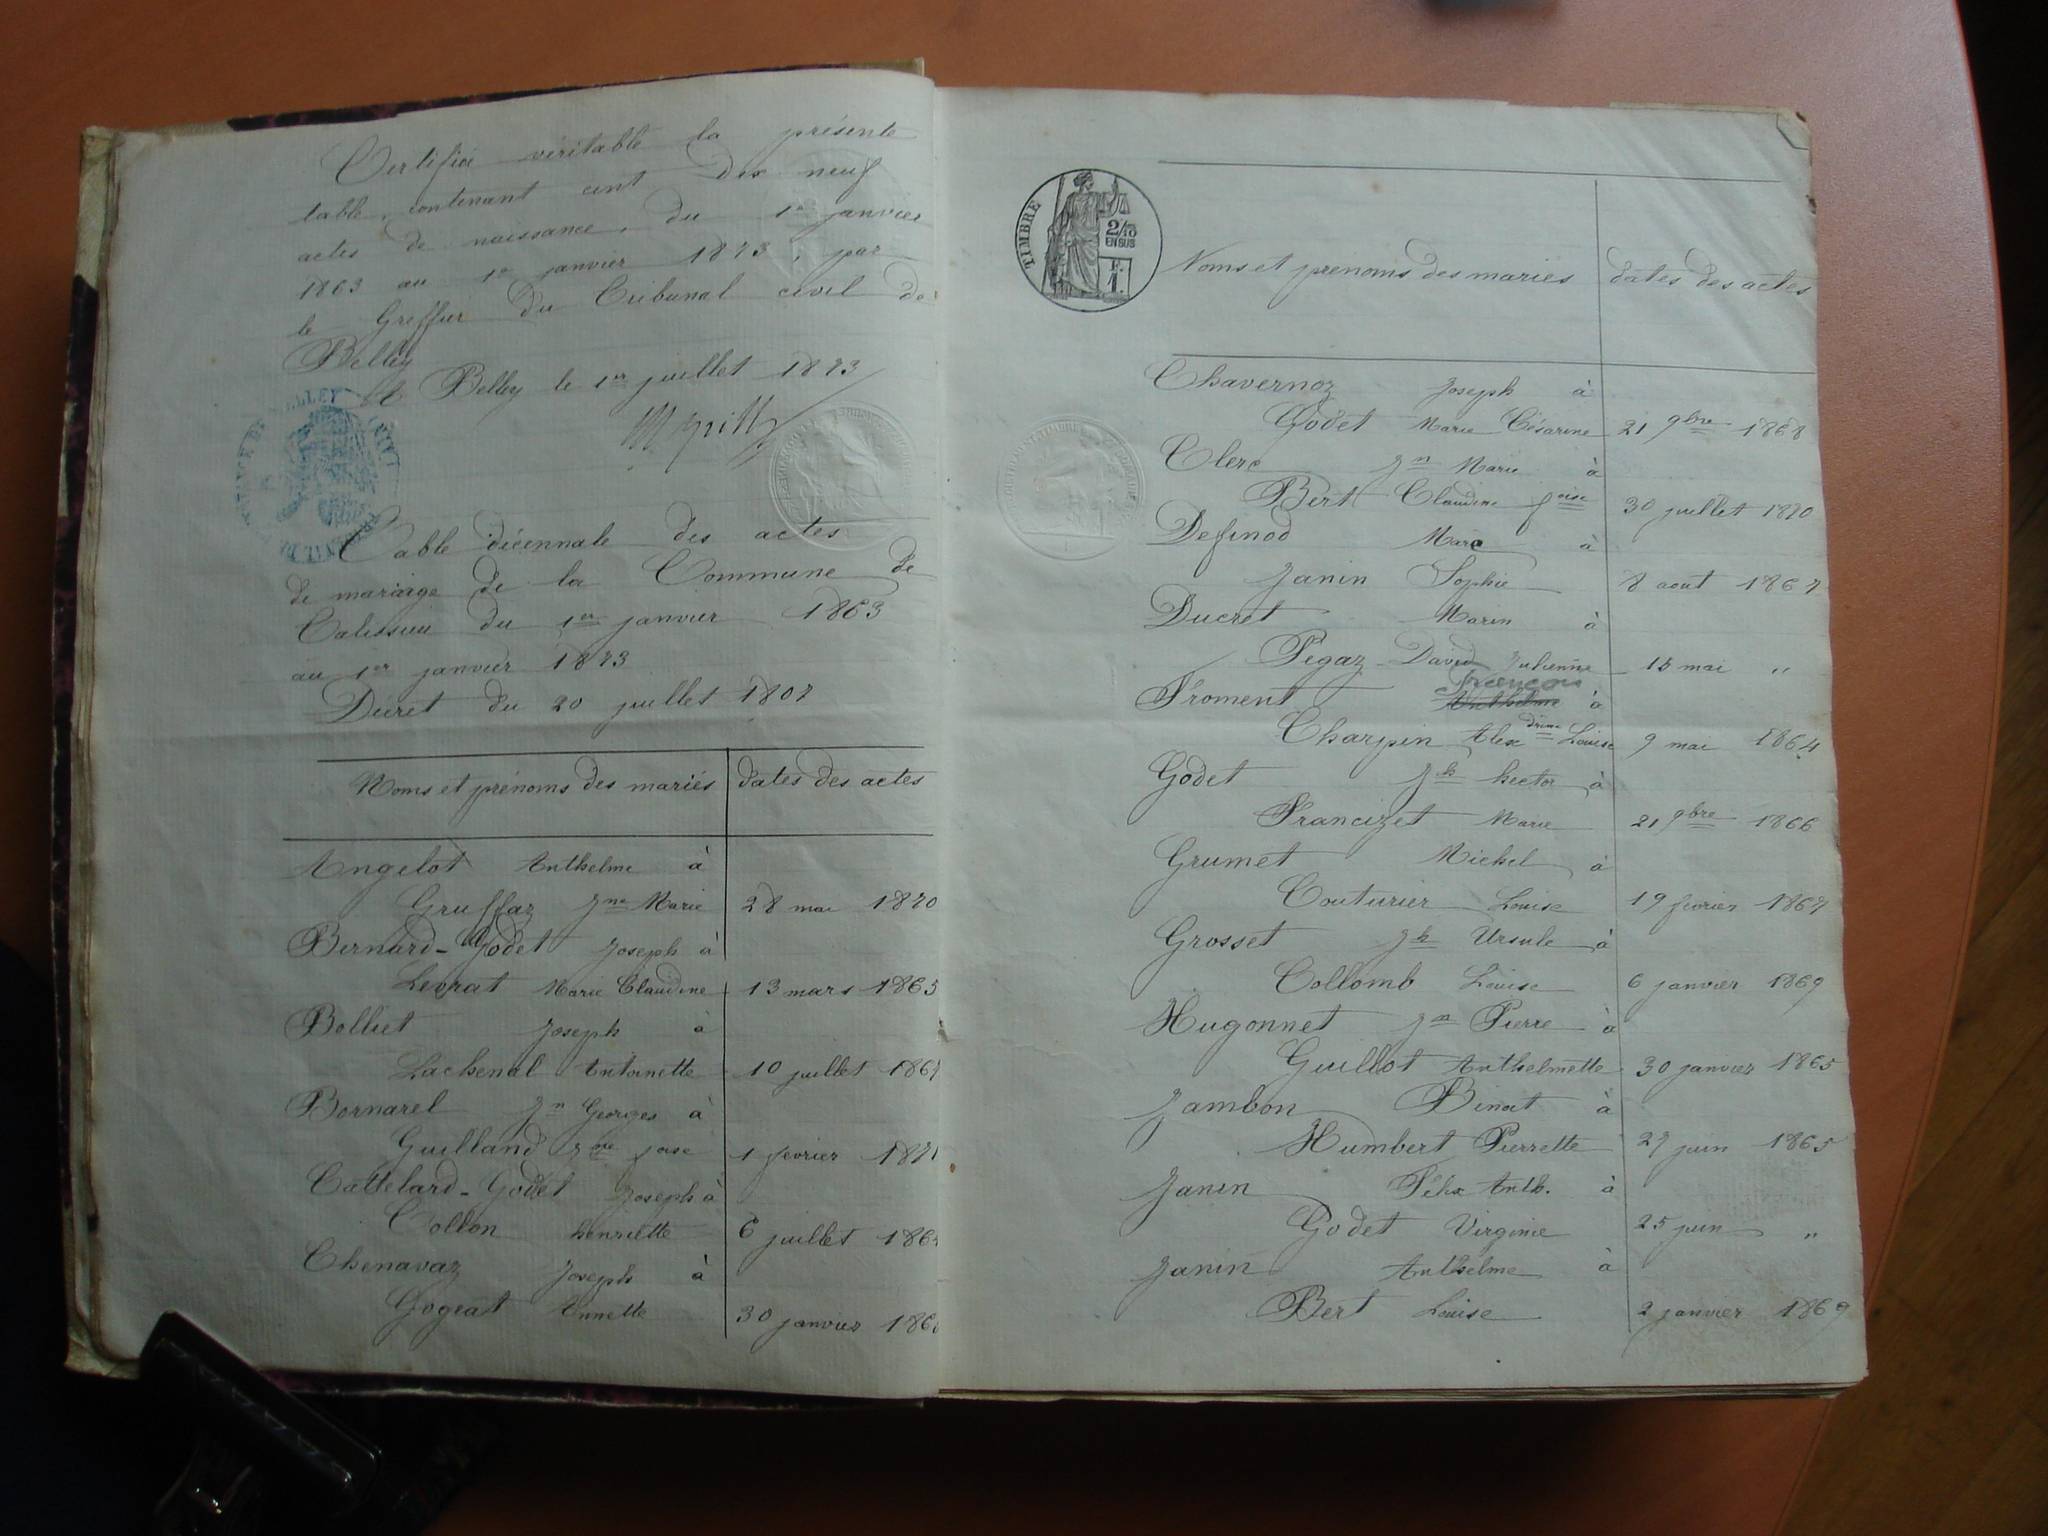 Certifié véritable la présente
table, contenant cent dix neuf
actes de naissance, du 1er janvier
1863 au 1er janvier 1873, par
le Greffier du Tribunal civil de
Belley
Belley le 1er juillet 1873
Table décennale des actes
de mariage de la Commune de
du 1er janvier 1863
au 1er janvier 1873
Décret du 20 juillet 1807
Noms et prénoms des mariés dates des actes
Angelot Anthelme à
Gruffaz Jne Marie 28 mai 1870
Bernard-Godet Joseph à
Levrat Marie Claudine 13 mars 1865
Bolliet Joseph à
Lachenal Antoinette 10 juillet
Bornarel Jn Georges à
Guilland 1 février 1871
Cattelard-Godet Joseph à
Collon henriette 6 juillet
Chenavaz Joseph à
Gogeat Annette 30 janvier
TIMBRE
2/10
EN SUS
F.
1
Noms et prenoms des mariés dates des actes
Chavernoz Joseph à
Godet Marie Césarine 21 9bre 1868
Clerc Jn Marie à
Bert Claudine foise 30 juillet 1870
Definod Marc à
Janin Sophie 8 aout 1867
Ducret Marin à
Pegaz-David Julienne 15 mai "
François
Froment Anthelme à
Charpin Alexdrine Louise 9 mai 1864
Godet Jh hector à
Francizet Marie 21 9bre 1866
Grumet Michel à
Couturier Louise 19 février 1867
Grosset Jh Ursule à
Collomb Louise 6 janvier 1869
Hugonnet Jn Pierre à
Guillot Anthelmette 30 janvier 1865
Jambon Benoit à
Humbert Pierrette 27 juin 1865
Janin Félix Anth. à
Godet Virginie 25 juin "
Janin Anthelme à
Bert Louise 2 janvier 1869